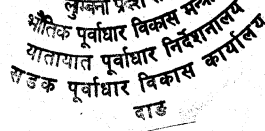 लुम्बिनी प्रदेश
भौतिक पूर्वाधार विकास मन्त्रा
यातायात पूर्वाधार निर्देशनालय
सडक पूर्वाधार विकास कार्यालय
दाङ